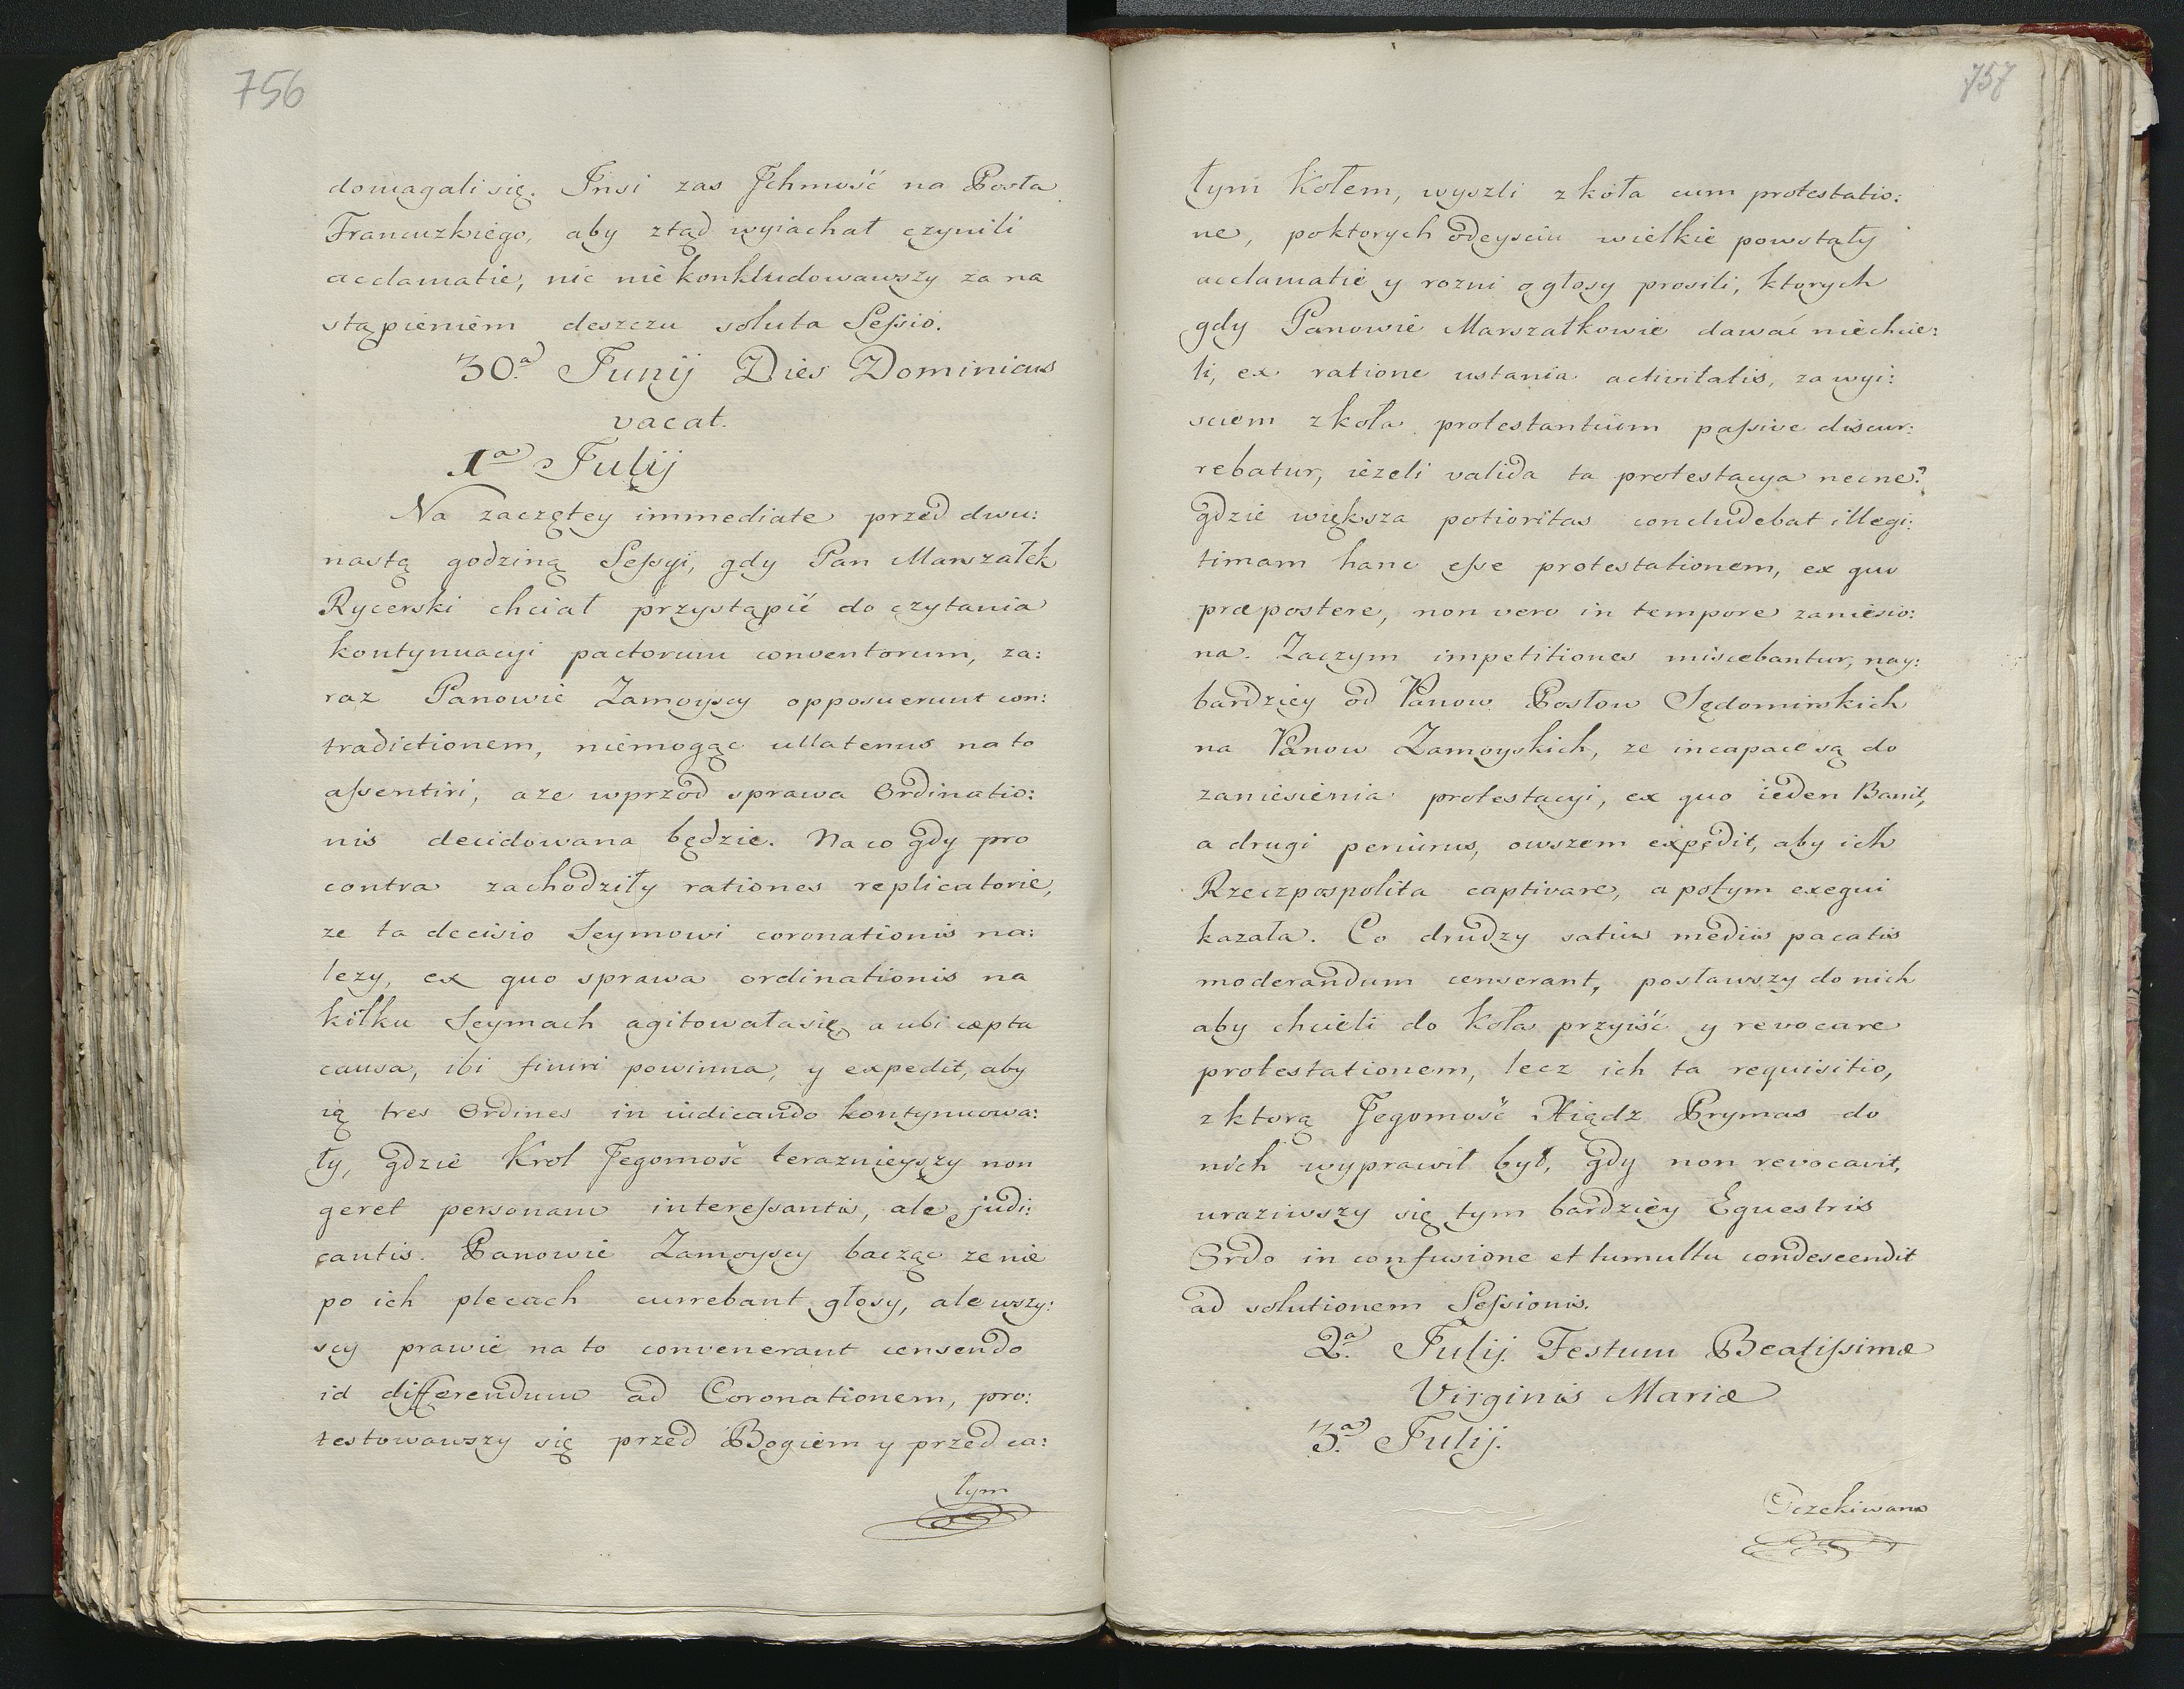 756
domagali się. Insi zas Jchmość na Posła
Francuzkiego, aby ztąd wyiachał czynili
acclamatie, nic nie konkludowawszy za na
stąpieniem deszczu soluta Sessio.
30.a Junij Dies Dominicus
vacat.
1a Julij
Na zaczętey immediate przed dwu:
nastą godziną Sessyi, gdy Pan Marszałek
Rycerski chciał przystąpić do czytania
kontynuacyi pactorum conventorum, za:
raz Panowie Zamoyscy opposuerunt con:
tradictionem, niemogąc ullatenus na to
assentiri, aze wprzod sprawa Ordinatio:
nis decidowana będzie. Na co gdy pro
contra zachodziły rationes replicatorie,
ze ta decisio Seymowi coronationis na:
lezy, ex quo sprawa ordinationis na
kilku Seymach agitowała się, a ubi cæpta
causa, ibi finiri powinna, y expedit, aby
ią tres Ordines in iudicando kontynuowa:
ły, gdzie Krol Jegomość teraznieyszy non
geret personam interessantis, ale judi:
cantis. Panowie Zamoyscy bacząc ze nie
po ich plecach currebant głosy, ale wszy:
scy prawie na to convenerant censendo
id differendum ad Coronationem, pro:
testowawszy się przed Bogiem y przed ca:
łym
757
łym Kołem, wyszli z koła cum protestatio:
ne, po ktorych odeysciu wielkie powstały
acclamatie y rozni o głosy prosili, ktorych
gdy Panowie Marszałkowie dawać niechcie:
li, ex ratione ustania activitatis, za wyi:
sciem z koła protestantium passive discur:
rebatur, ieżeli valida ta protestacya necne?
gdzie większa potioritas concludebat illegi:
timam hanc esse protestationem, ex quo
præpostere, non vero in tempore zaniesio:
na. Zaczym impetitiones miscebantur, nay:
bardziey od Panow Posłow Sędomirskich
na Panow Zamoyskich, ze incapace są do
zaniesienia protestacyi, ex quo ieden Banit,
a drugi periurus, owszem expedit, aby ich
Rzeczpospolita captivare, a potym exequi
kazała. Co drudzy satius mediis pacatis
moderandum censerant, posławszy do nich
aby chcieli do Koła przyiść y revocare
protestationem, lecz ich ta requisitio,
z ktorą Jegomość Xiądz Prymas do
nich wyprawił był, gdy non revocavit,
uraziwszy się tym bardziey Equestris
Ordo in confusione et tumultu condescendit
ad solutionem Sessionis.
2.a Julij. Festum Beatissimæ
Virginis Mariæ
3.a Julij.
Oczekiwano